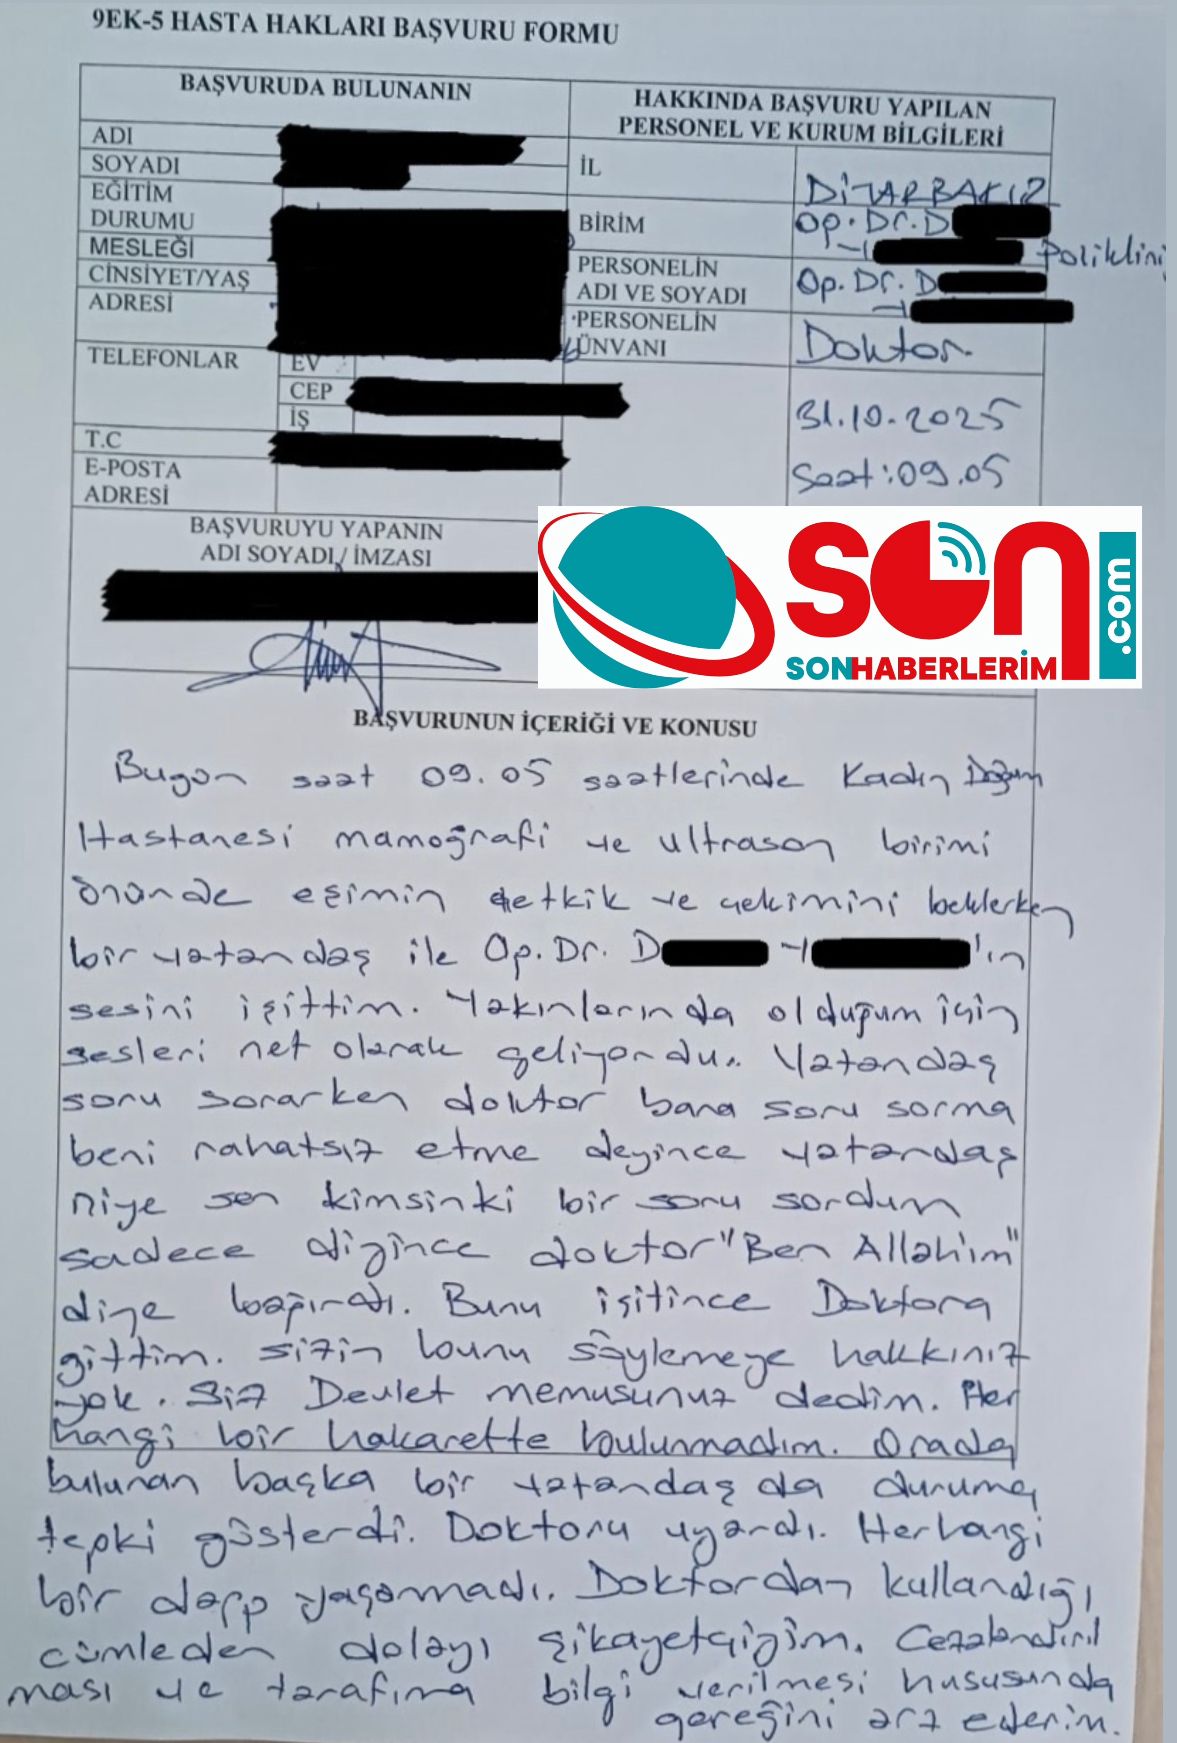 9EK-5 HASTA HAKLARI BAŞVURU FORMU
BAŞVURUDA BULUNANIN
HAKKINDA BAŞVURU YAPILAN
PERSONEL VE KURUM BİLGİLERİ
ADI
SOYADI
EĞİTİM
DURUMU
MESLEĞİ
CİNSİYET/YAŞ
ADRESİ
TELEFONLAR
EV
CEP
İŞ
T.C
E-POSTA
ADRESİ
İL
DİYARBAKIR
BİRİM
Op. Dr. D
Y
Poliklini
PERSONELİN
ADI VE SOYADI
Op. Dr. D
Y
PERSONELİN
ÜNVANI
Doktor.
31.10.2025
Saat:09.05
BAŞVURUYU YAPANIN
ADI SOYADI / İMZASI
son
.com
SONHABERLERİM
BAŞVURUNUN İÇERİĞİ VE KONUSU
Bugün saat 09.05 saatlerinde Kadın Doğum
Hastanesi mamoğrafi ve ultrason birimi
önünde eşimin tetkik ve çekimini beklerken
bir vatandaş ile Op. Dr. D Y 'ın
sesini işittim. Yakınlarında olduğum için
sesleri net olarak geliyordu. Vatandaş
soru sorarken doktor bana soru sorma
beni rahatsız etme deyince vatandaş
niye sen kimsinki bir soru sordum
sadece diyince doktor "Ben Allah'ım"
diye bağırdı. Bunu işitince Doktora
gittim. Sizin bunu söylemeye hakkınız
yok. Siz Devlet memusunuz dedim. Her
hangi bir hakarette bulunmadım. Orada
bulunan başka bir vatandaş da duruma
tepki gösterdi. Doktoru uyardı. Herhangi
bir darp yaşanmadı. Doktordan kullandığı
cümleden dolayı şikayetçiyim. Cezalandırıl
ması ve tarafıma bilgi verilmesi hususunda
gereğini arz ederim.